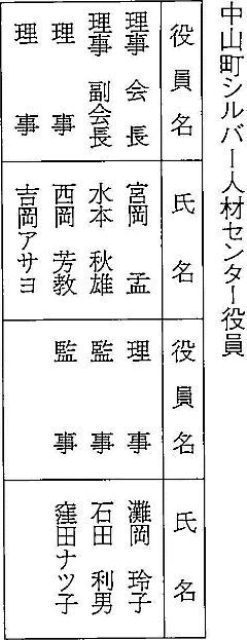 中山町シルバー人材センター役員
役員名 氏名 役員名 氏名
理事会長 宮岡 孟 理事 灘岡 玲子
理事副会長 水本 秋雄 監事 石田 利男
理事 西岡 芳教 監事 窪田ナツ子
理事 吉岡アサヨ